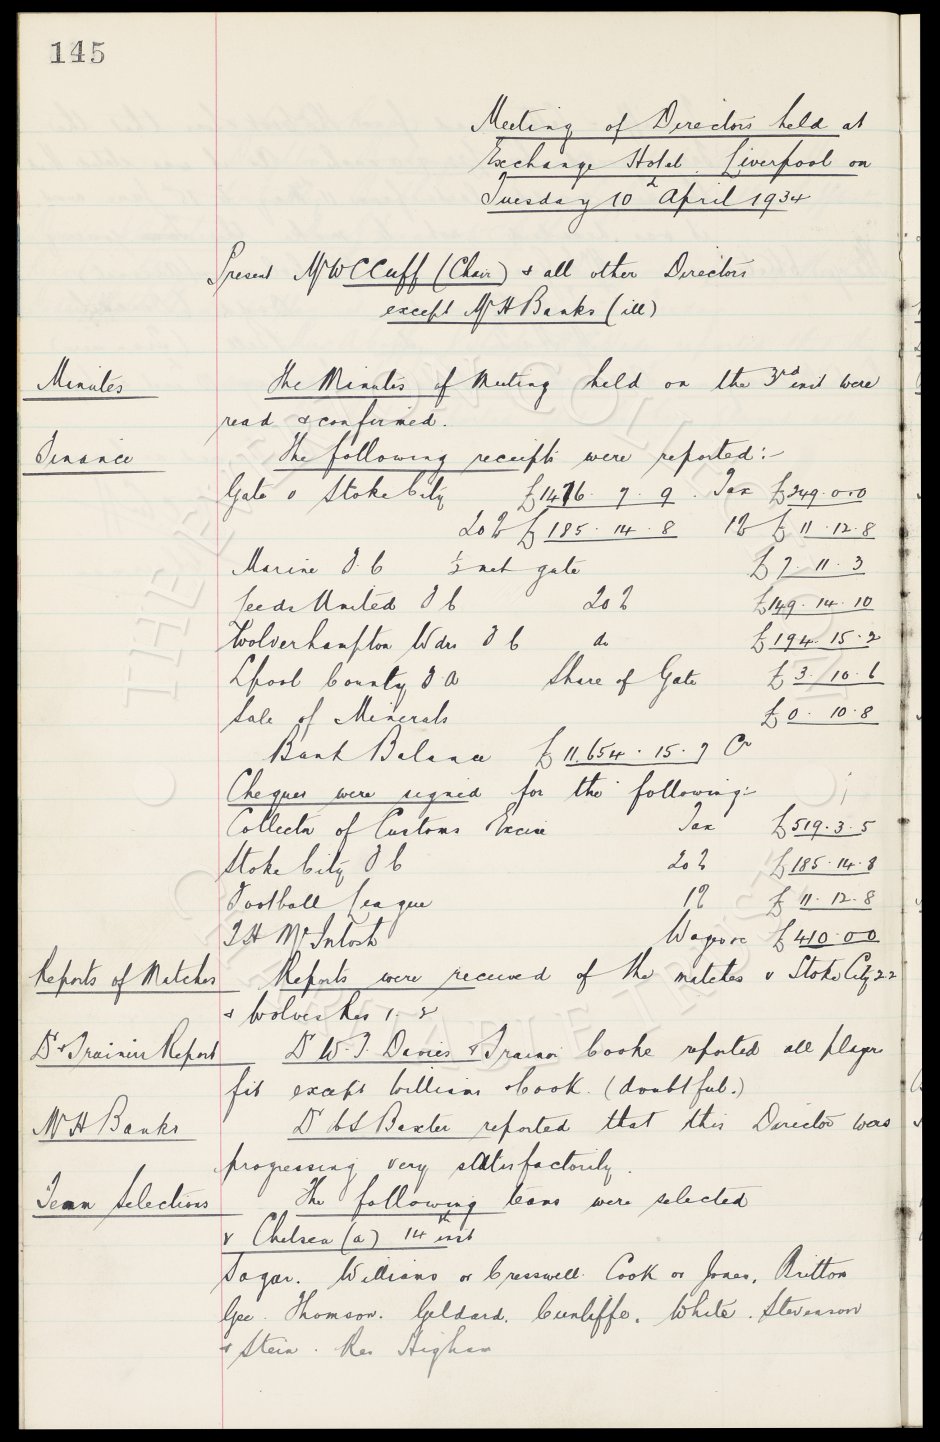 145
Meeting of Directors held at
Exchange Hotel, Liverpool on
Tuesday 10th April 1934
Present Mr W C Cuff (Chair) & all other Directors
except Mr H Banks (ill)
Minutes The Minutes of Meeting held on the 3rd inst were
read & confirmed.
Finance The following receipts were reported:-
Gate v Stoke City £1476. 7. 9. Tax £249.0.0
20% £185. 14. 8 1% £11.12.8
Marine F C ½ net gate £7. 11. 3
Leeds United F C 20% £149. 14. 10
Wolverhampton Wdrs F C do £194. 15. 2
Lpool County F A Share of Gate £3. 10. 6
Sale of Minerals £0. 10. 8
Bank Balance £11,654. 15. 7 Cr
Cheques were signed for the following:-
Collector of Customs Excise Tax £519. 3. 5
Stoke City F C 20% £185. 14. 8
Football League 1% £11. 12. 8
T H McIntosh Wages &c £410. 0 0
Reports of Matches Reports were received of the matches v Stoke City 2.2
& Wolves Res 1. 2
Dr & Trainers Report Dr W. F. Davies & Trainer Cooke reported all players
fit except Williams & Cook. (doubtful.)
Mr H Banks Dr C S Baxter reported that this Director was
progressing very satisfactorily.
Team Selections The following teams were selected
v Chelsea (a) 14th inst
Sagar. Williams or Cresswell. Cook or Jones, Britton
Gee. Thomson. Geldard. Cunliffe. White. Stevenson
& Stein. Res Higham
THE EVERTON
COLLECTION
CHARITABLE TRUST